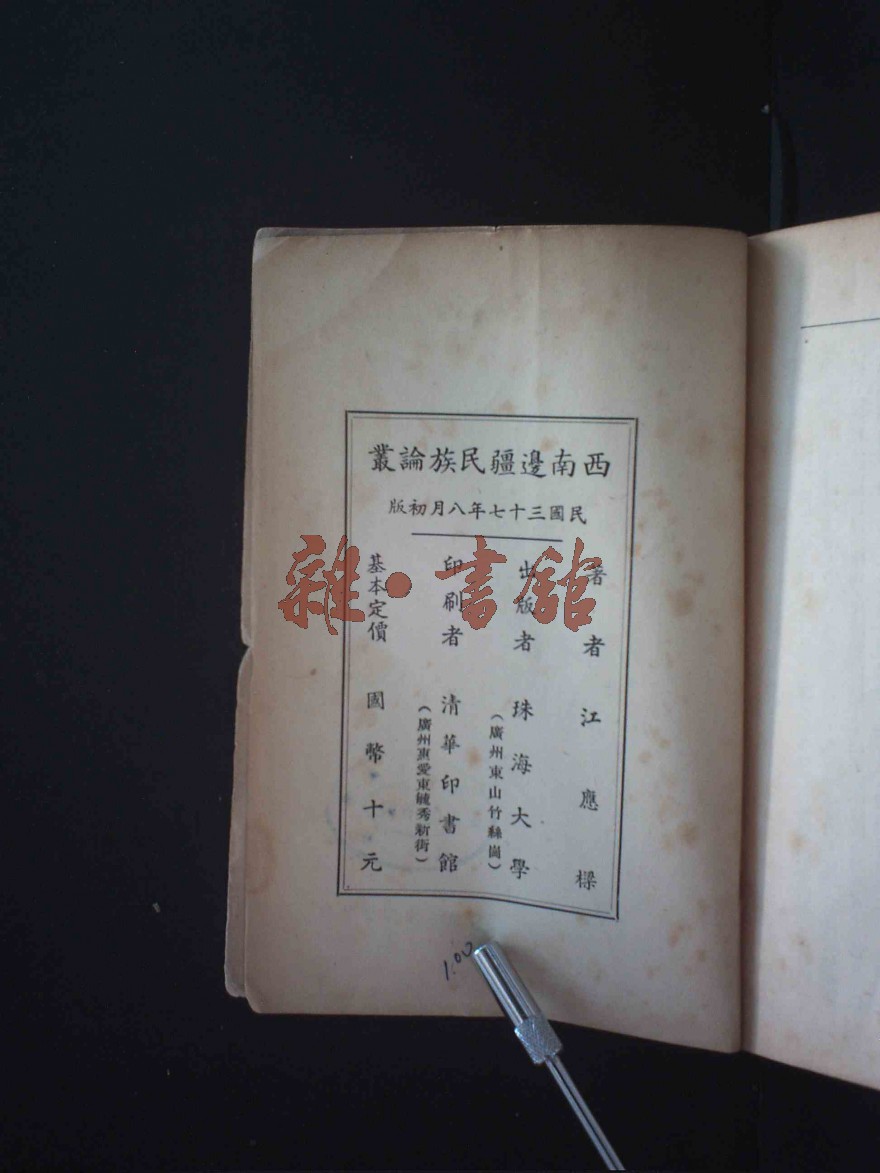 西南邊疆民族論叢
民國三十七年八月初版
著者 江應樑
出版者 珠海大學
（廣州東山竹絲崗）
印刷者 清華印書館
（廣州惠愛東毓秀新街）
基本定價 國幣十元
雜·書館
1.00